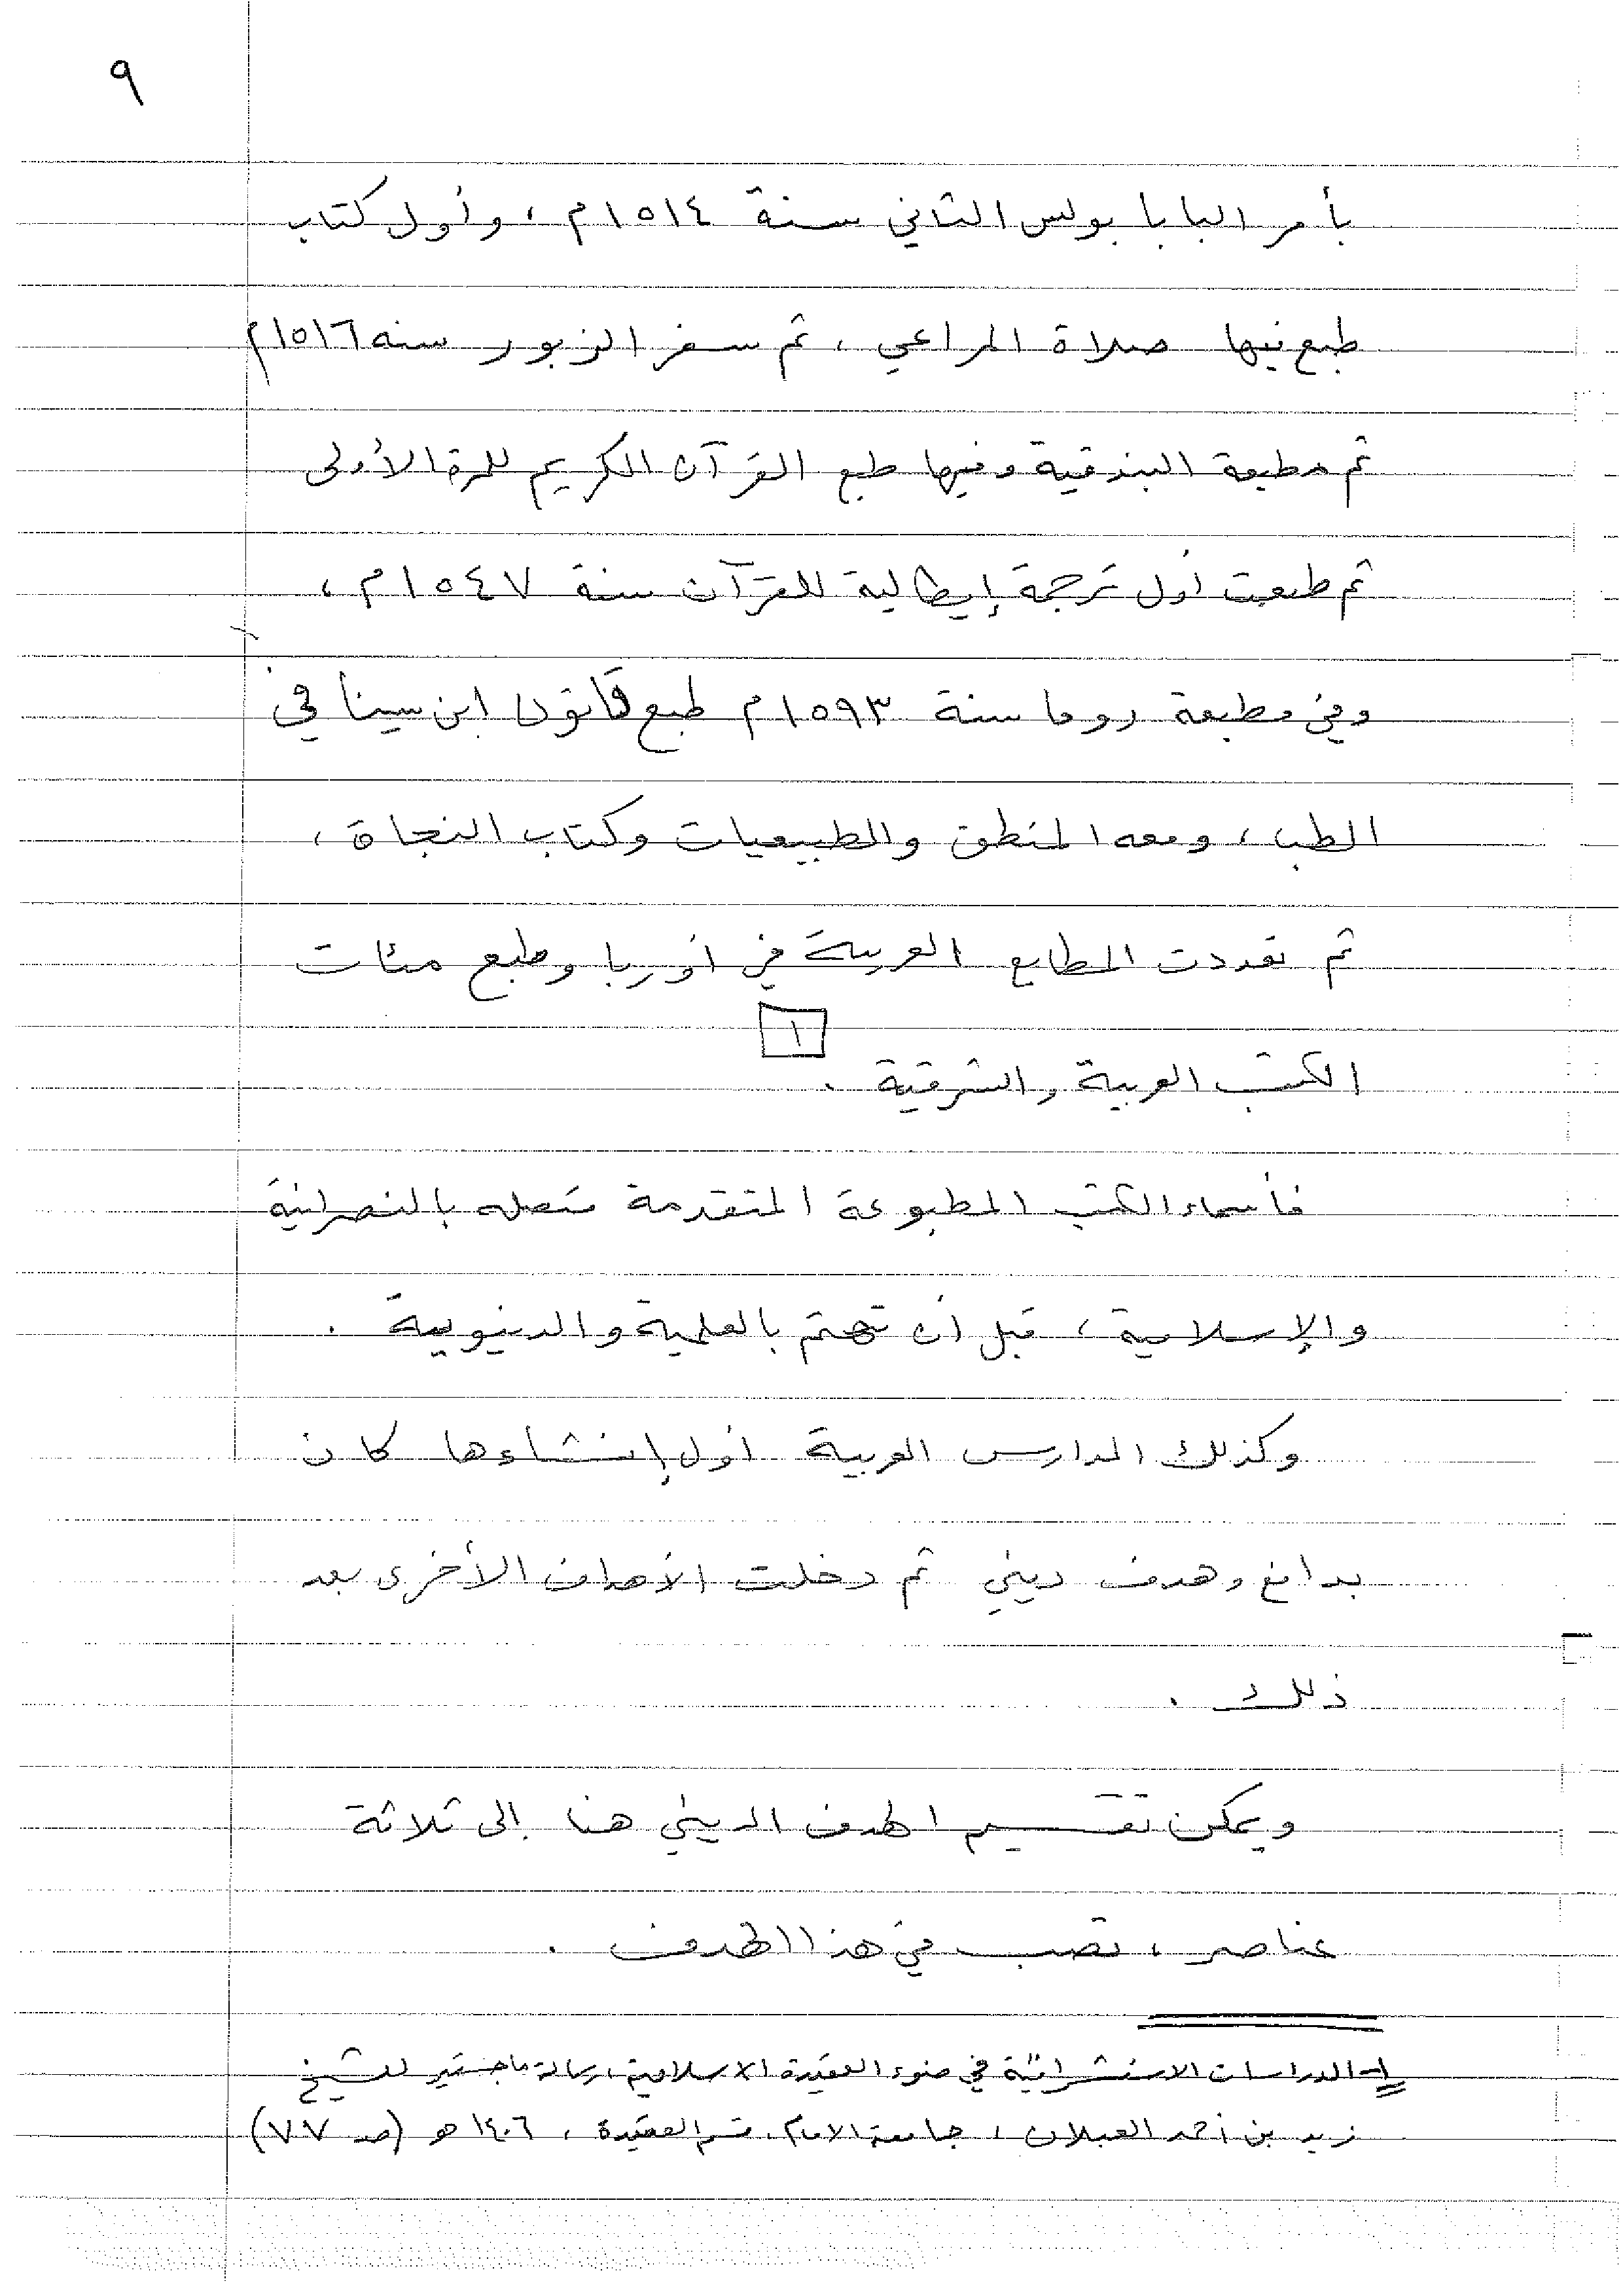 ٩
بأمر البابا بولس الثاني سنة ١٥١٤م ، وأول كتاب
طبع فيها صلاة المراعي ، ثم سفر الزبور سنه ١٥١٦م
ثم مطبعة البندقية وفيها طبع القرآن الكريم للمرة الأولى
ثم طبعت أول ترجمة إيطالية للقرآن سنة ١٥٤٧م ،
وفي مطبعة روما سنة ١٥٩٣م طبع قانون ابن سينا في
الطب ، ومعه المنطق والطبيعيات وكتاب النجاة ،
ثم تعددت المطابع العربية في أوربا وطبع مئات
الكتب العربية والشرقية . ١
فأسماء الكتب المطبوعة المتقدمة متصله بالنصرانية
والإسلامية ، قبل أن تهتم بالعلمية والدنيوية .
وكذلك المدارس العربية أول إنشاءها كان
بدافع وهدف ديني ثم دخلت الأهداف الأخرى بعد
ذلك .
ويمكن تقسيم الهدف الديني هنا إلى ثلاثة
عناصر ، تصب في هذا الهدف .
١- الدراسات الاستشراقية في ضوء العقيدة الاسلامية ، رسالة ماجستير للشيخ
زيد بن أحمد العبلان ، جامعة الامام ، قسم العقيدة ، ١٤٠٦ هـ (صـ ٧٧)